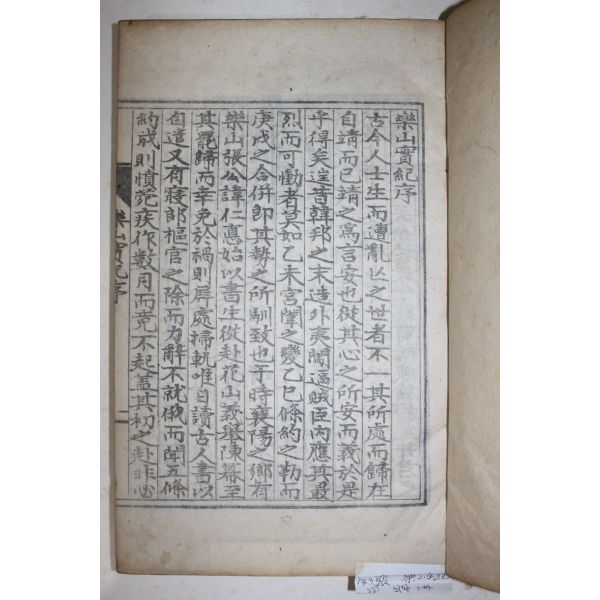 樂山實紀序
古今人士生而遭亂亡之世者不一其所處而歸在
自靖而已靖之爲言安也從其心之所安而義於是
乎得矣迨昔韓邦之末造外夷闖逼賊臣內應其最
烈而可慟者莫如乙未宮闈之變乙巳條約之勒而
庚戌之合併卽其勢之所馴致也于時襄陽之鄕有
樂山張公諱仁悳始以書生從赴花山義擧陳幕至
其罷歸而幸免於禍則屛處掃軌唯日讀古人書以
自遣又有寢郞樞官之除而力辭不就俄而聞五條
約成則憤菀疾作數月而竟不起蓋其初之赴非心
樂山實紀序